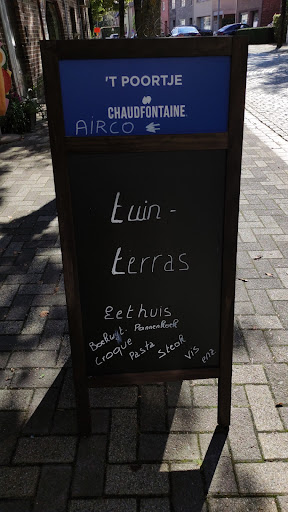 'T POORTJE
CHAUDFONTAINE
AIRCO
tuin -
terras
Eethuis
Pannenkoek
Croque Pasta Steak Vis enz